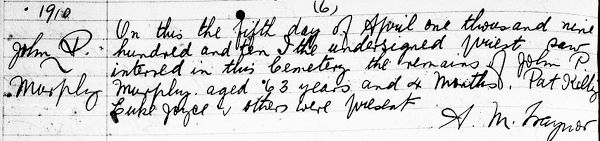 1910
(6)
John P.
Murphy
On this the fifth day of April one thousand nine
hundred and ten I the undersigned priest saw
interred in this Cemetery the remains of John P
Murphy aged 63 years and 4 Months. Pat Kelly
Luke Joyce & others were present
A. M. Traynor